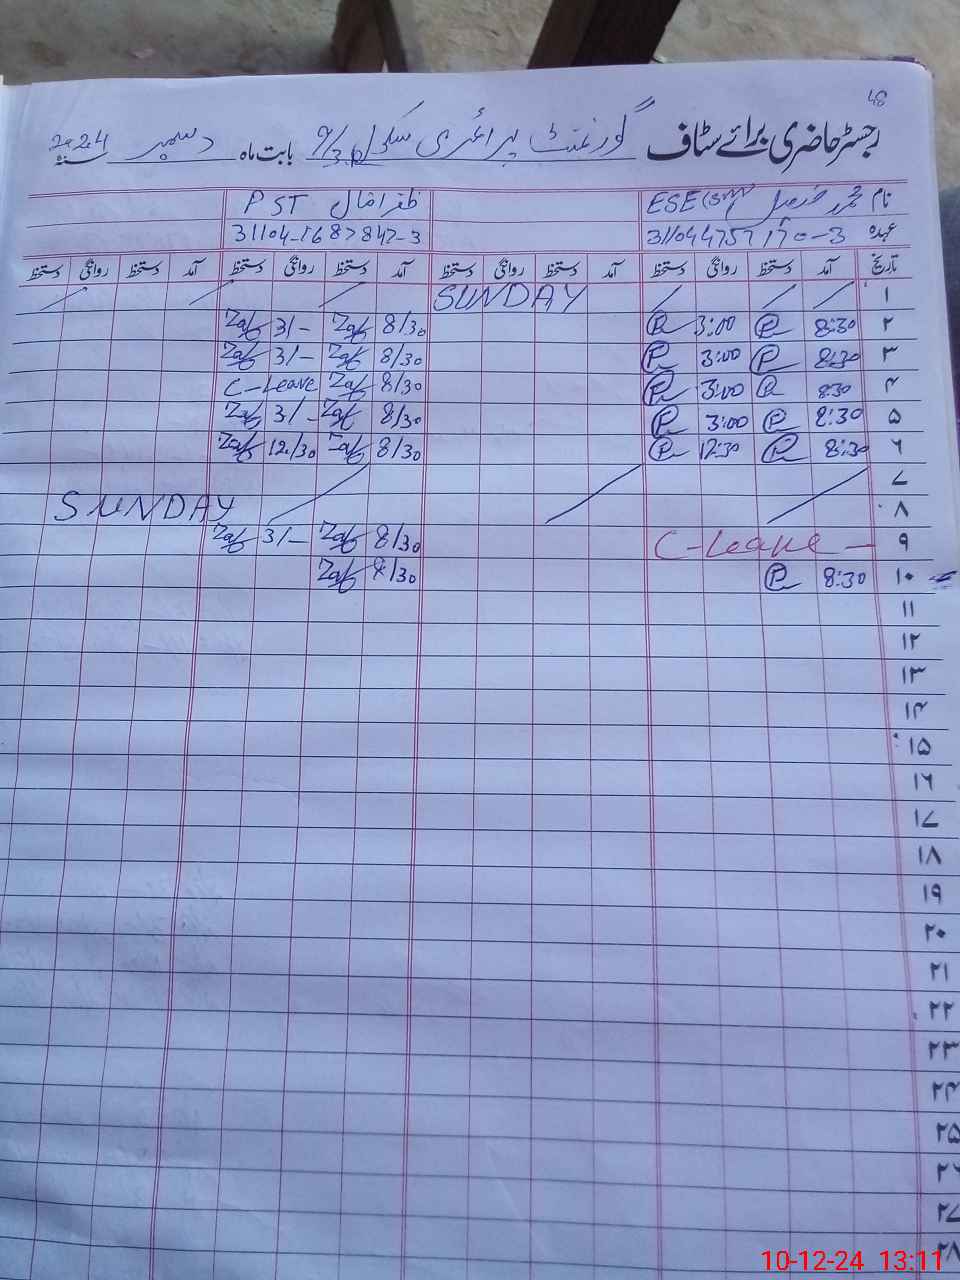 رجسٹر حاضری برائے سٹاف گورنمنٹ پرائمری سکول 9/3.R بابت ماہ دسمبر سنہ 2024
نام محمد فیصل ESE ظفر اقبال PST
عہدہ 31104-1687847-3
تاریخ آمد دستخط روانگی دستخط آمد دستخط روانگی دستخط آمد دستخط روانگی دستخط آمد دستخط روانگی دستخط
۱ SUNDAY
۲ 8:30 3:00 8/30 Zaf 3/- Zaf
۳ 8:30 3:00 8/30 Zaf 3/- Zaf
۴ 8:30 3:00 8/30 Zaf C-Leave
۵ 8:30 3:00 8/30 Zaf 3/- Zaf
۶ 8:30 12:30 8/30 Zaf 12/30 Zaf
۷
۸ SUNDAY
۹ C-Leave 8/30 Zaf 3/- Zaf
۱۰ 8:30 8/30 Zaf
۱۱
۱۲
۱۳
۱۴
۱۵
۱۶
۱۷
۱۸
۱۹
۲۰
۲۱
۲۲
۲۳
۲۴
۲۵
۲۶
۲۷
۲۸
10-12-24 13:11